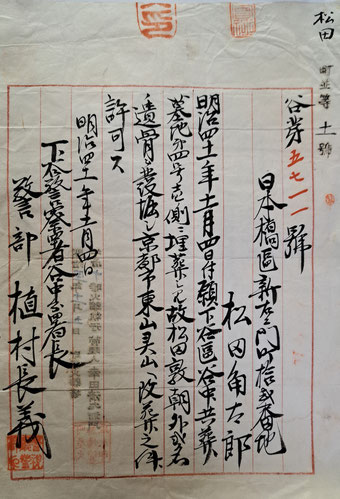 松田
町並等 土號
谷芽五七一一號
日本橋區新右衛門町拾弐番地
松田角太郎
明治四十一年十一月四日付願下谷區谷中共葬
墓地第四号壱側ニ埋葬シアル故松田敦朝外弐名
遺骨発掘シ京都市東山霊山ヘ改葬之件
許可ス
明治四十一年十一月四日
下谷警察署谷中分署長
警部 植村長義